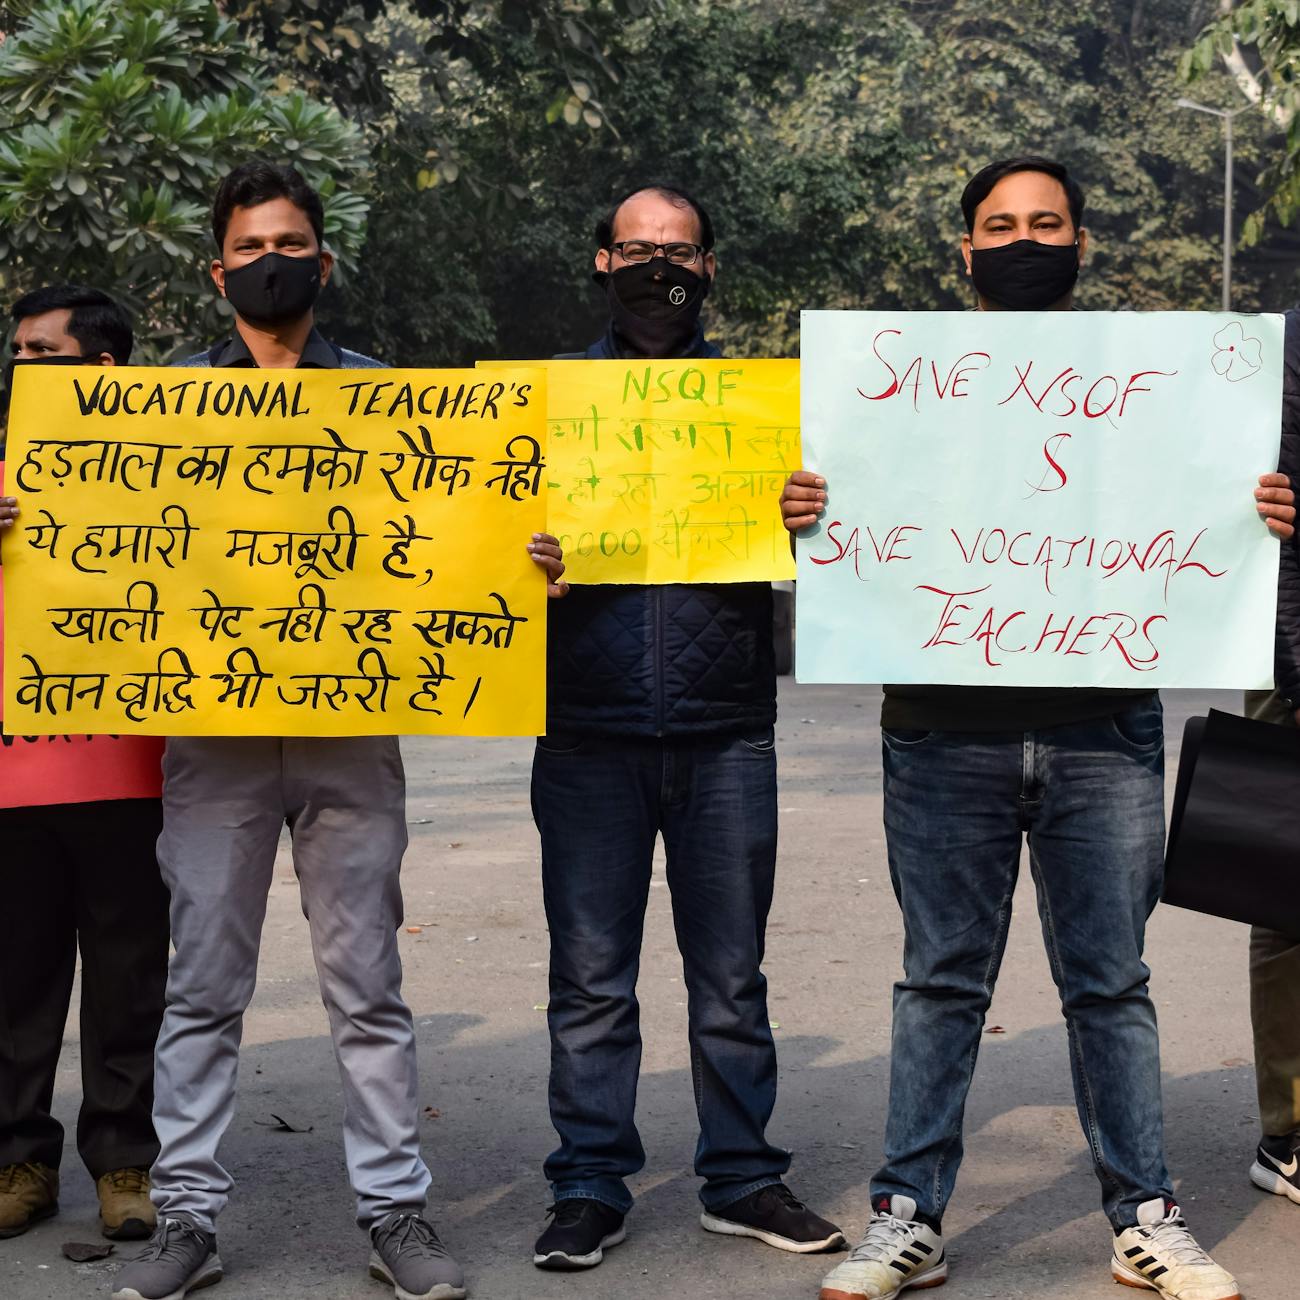 VOCATIONAL TEACHER'S
हड़ताल का हमको शौक नहीं
ये हमारी मजबूरी है,
खाली पेट नही रह सकते
वेतन वृद्धि भी जरुरी है।
NSQF
सरकारी स्कू
हो रहा अत्याच
0000 सैलरी।
SAVE NSQF
&
SAVE VOCATIONAL
TEACHERS